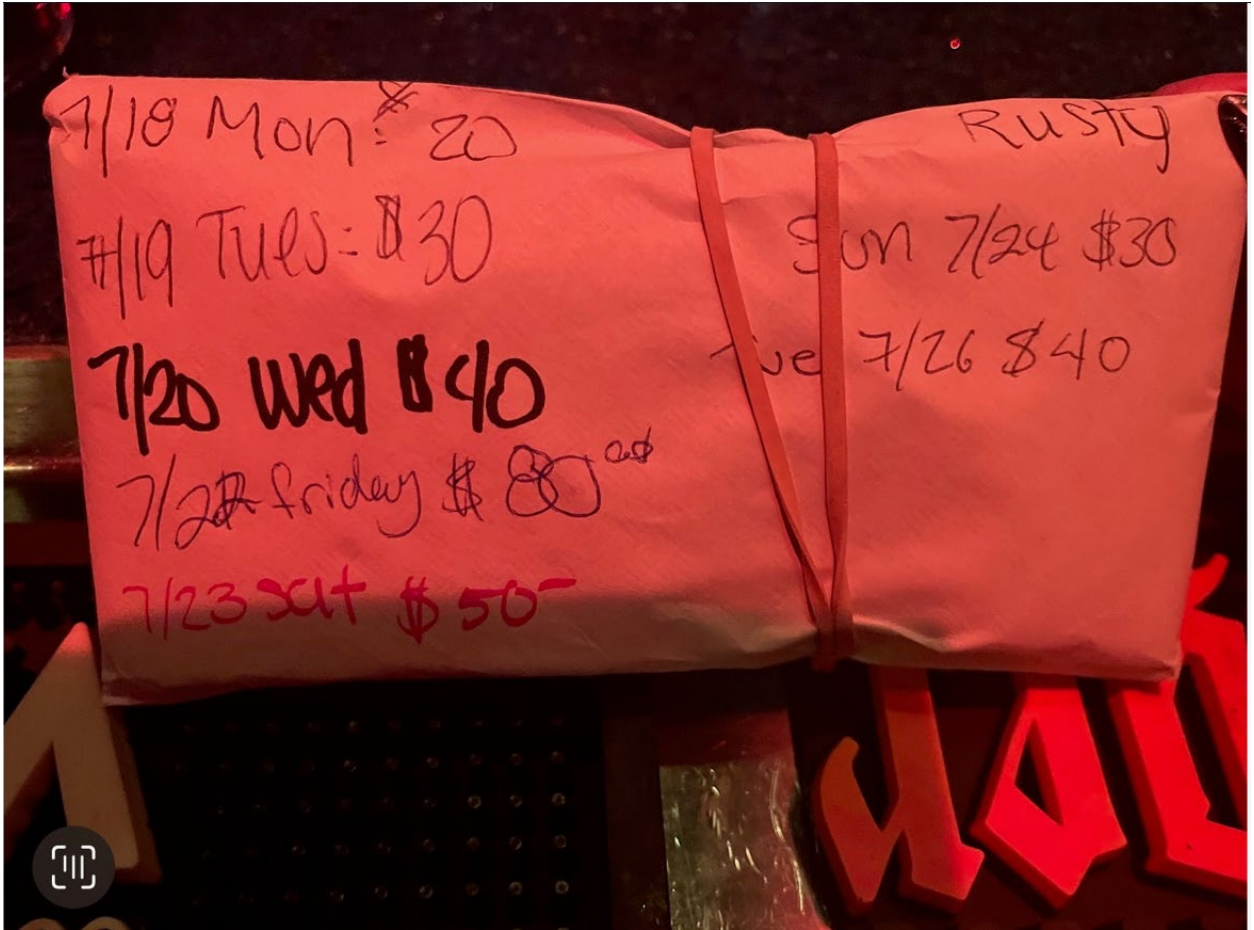 7/18 Mon: $20
7/19 Tues: $30
7/20 Wed $40
7/22 friday $80
7/23 sat $50-
Rusty
Sun 7/24 $30
Tue 7/26 $40